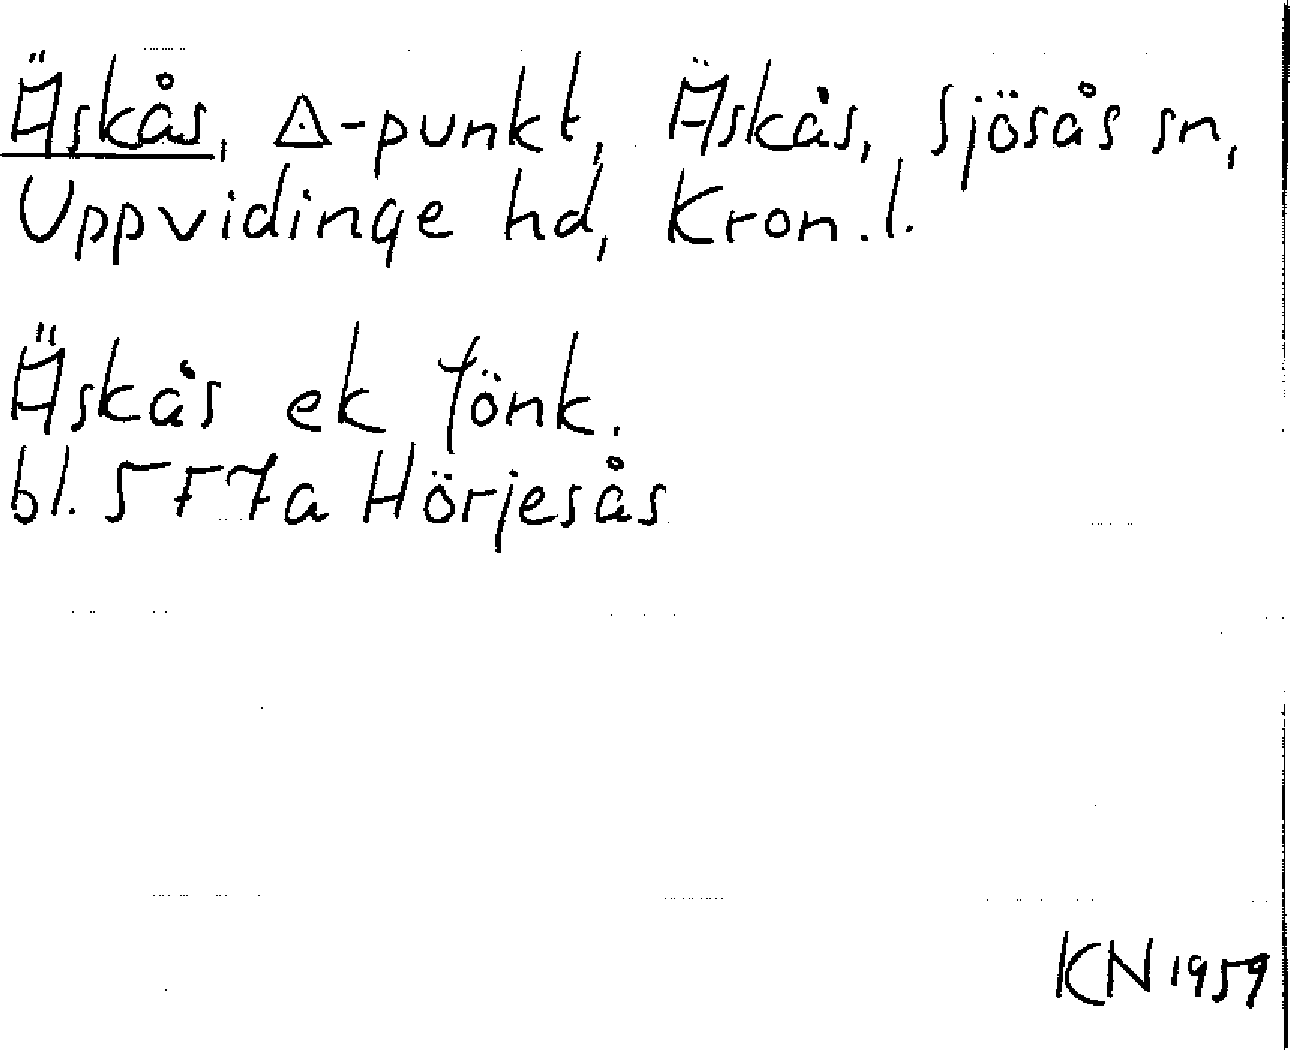 Äskås, △-punkt, Äskås, Sjösås sn,
Uppvidinge hd, Kron.l.
Äskås ek Jönk.
bl. 5F7a Hörjesås
KN 1959